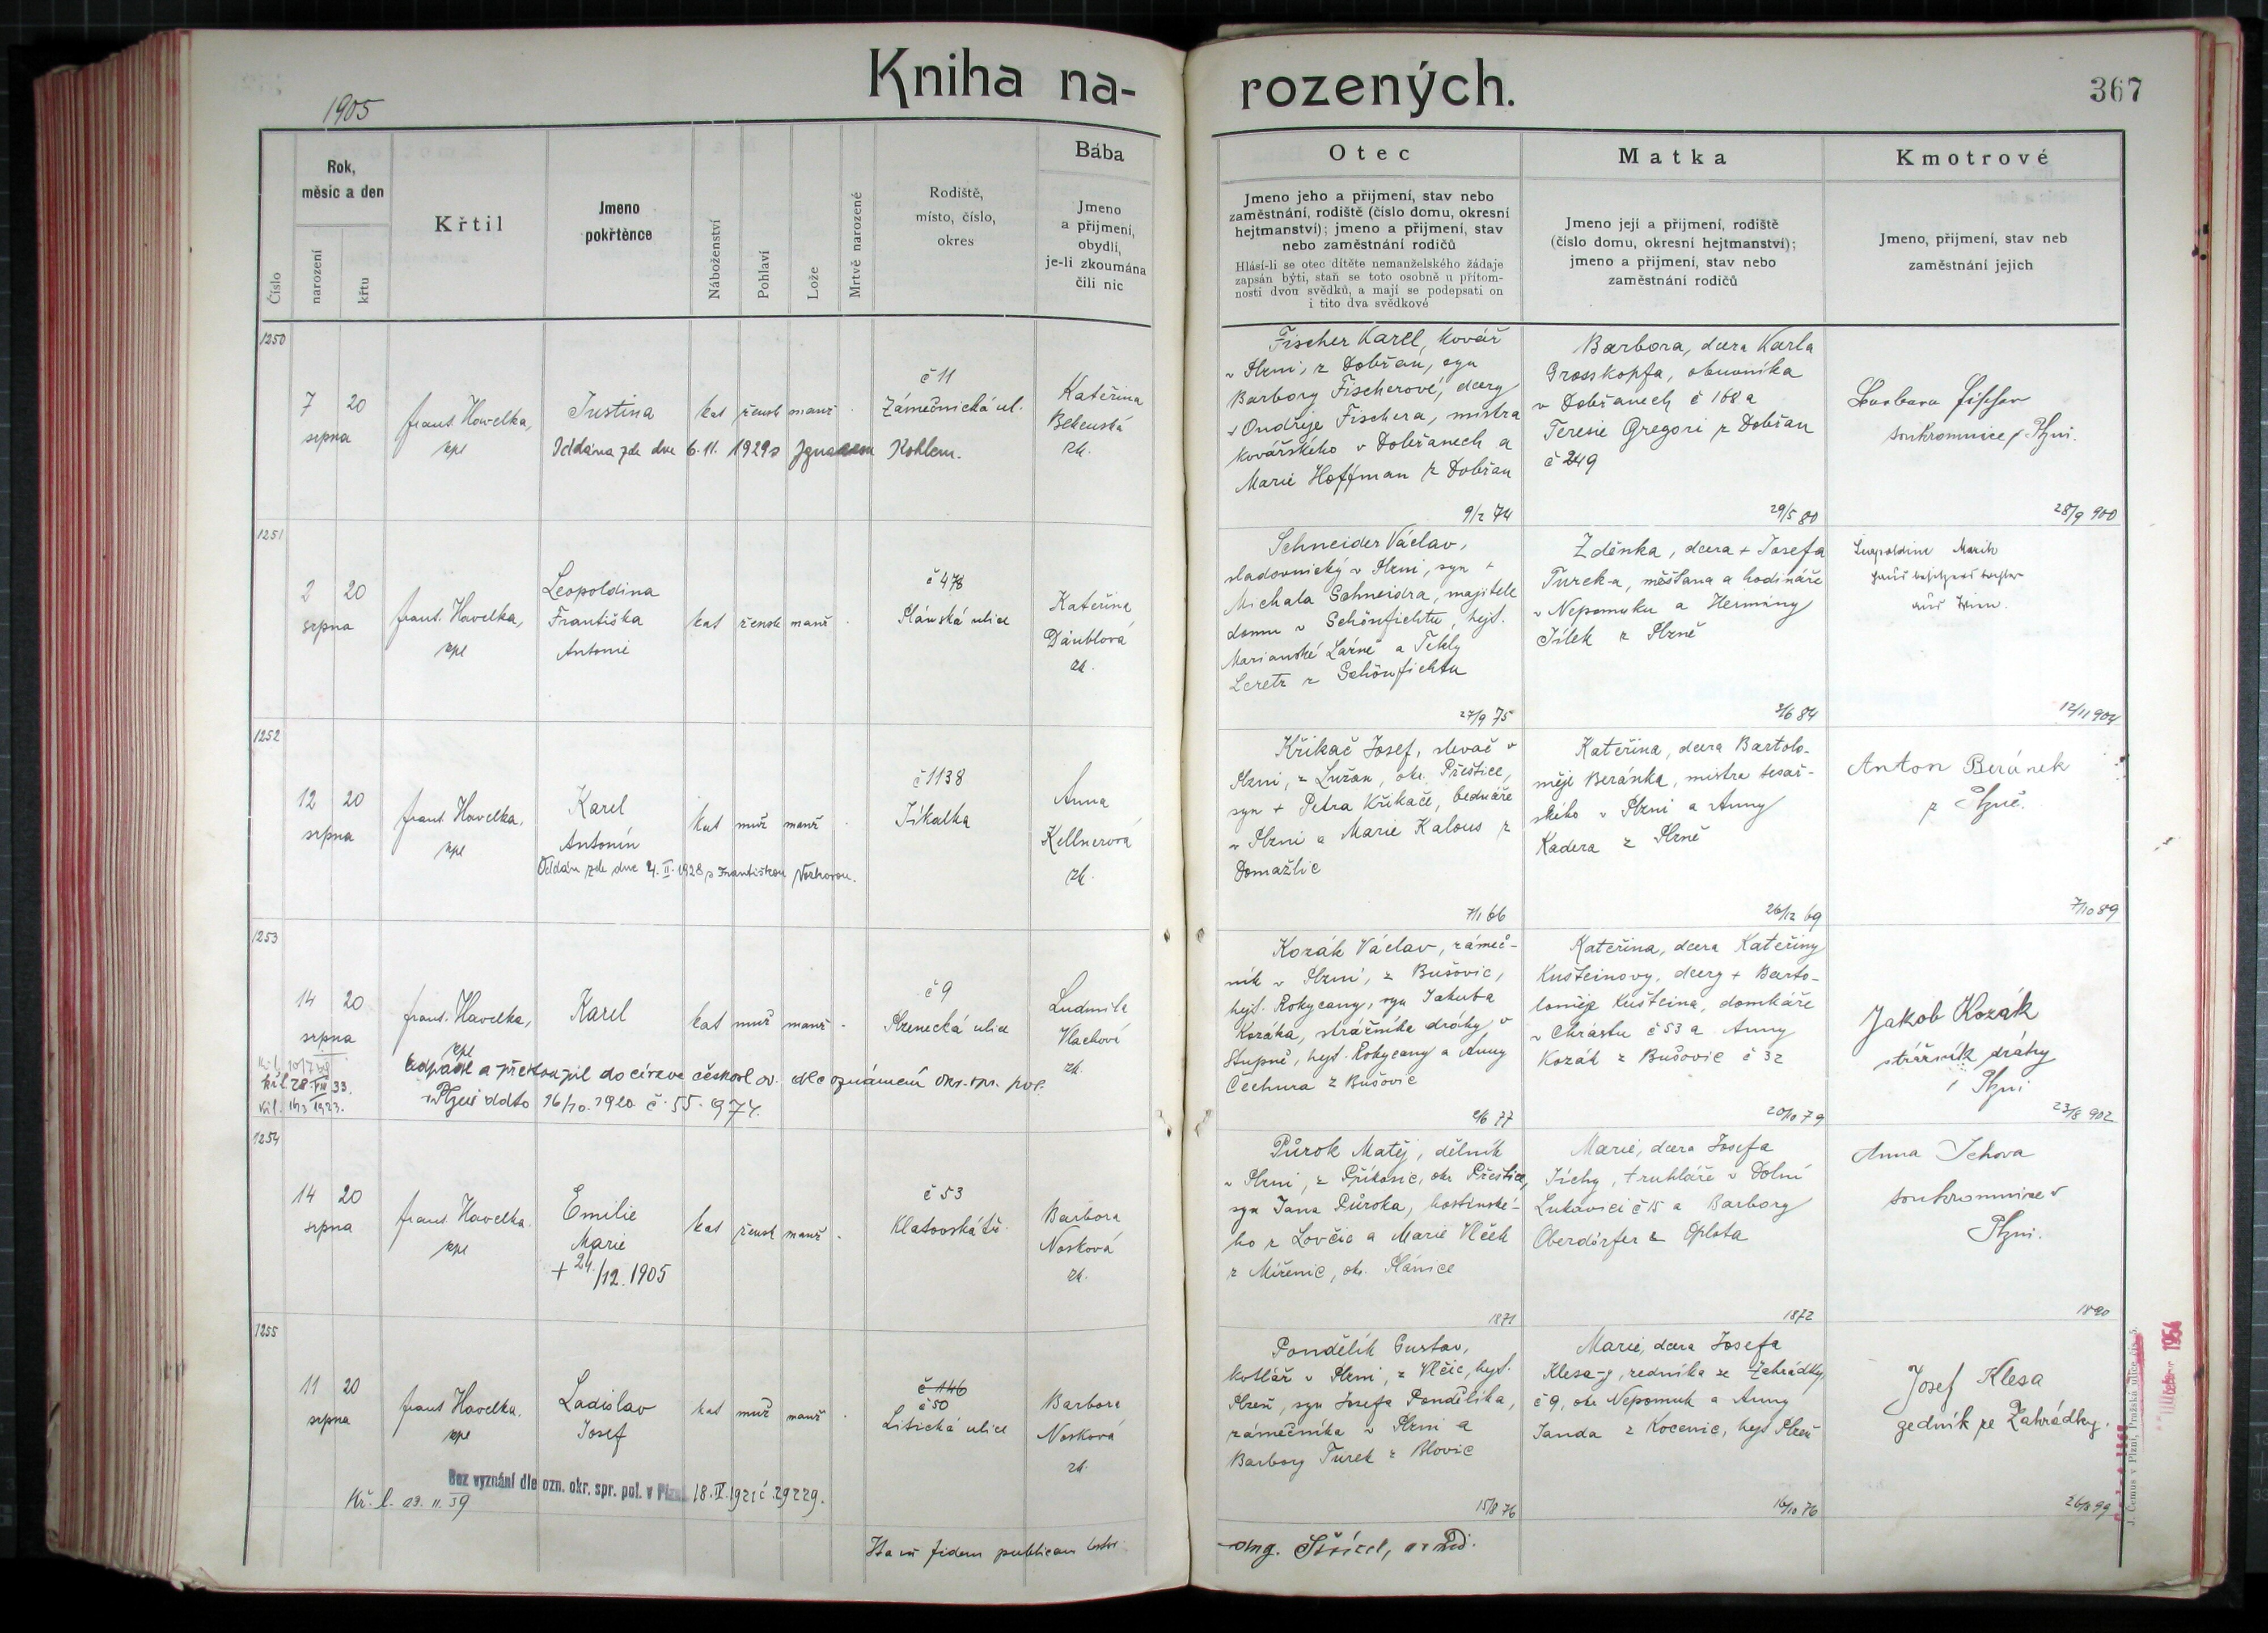 Kniha na-
rozených.
367
1905
Číslo
Rok,
měsíc a den
narození
křtu
Křtil
Jmeno
pokřtěnce
Náboženství
Pohlaví
Lože
Mrtvě narozené
Rodiště,
místo, číslo,
okres
Bába
Jmeno
a přijmení,
obydlí,
je-li zkoumána
čili nic
Otec
Jmeno jeho a přijmení, stav nebo
zaměstnání, rodiště (číslo domu, okresní
hejtmanství); jmeno a přijmení, stav
nebo zaměstnání rodičů
Hlásí-li se otec dítěte nemanželského žádaje
zapsán býti, staň se toto osobně u přítom-
nosti dvou svědků, a mají se podepsati on
i tito dva svědkové
Matka
Jmeno její a přijmení, rodiště
(číslo domu, okresní hejtmanství);
jmeno a přijmení, stav nebo
zaměstnání rodičů
Kmotrové
Jmeno, přijmení, stav neb
zaměstnání jejich
1250
7 20
srpna
frant. Havelka,
kpl
Justina
kat žensk manž
č 11
Zámečnická ul.
Kateřina
zk.
Oddána zde dne 6.11. 1929 s Kohlem.
Fischer Karel, kovář
v Plzni, z Dobřan, syn
Barbory Fischerové, dcery
Ondřeje Fischera, mistra
kovářského v Dobřanech a
Marie Hoffman z Dobřan
9/2 74
Barbora, dcera Karla
Grosskopfa, obuvníka
v Dobřanech č 168 a
Teresie Gregori z Dobřan
č 249
29/5 80
Barbara Fischer
soukromnice v Plzni.
28/9 900
1251
2 20
srpna
frant. Havelka,
kpl
Leopoldina
Františka
Antonie
kat žensk manž
č 478
Plánská ulice
Kateřina
Däublová
zk.
Schneider Václav,
sladovnický v Plzni, syn +
Michala Schneidra, majitele
domu v Schönfichtu, hejt.
Marianské Lázně a Tekly
z Schönfichtu
27/9 75
Zdeňka, dcera + Josefa
Turek-a, měšťana a hodináře
v Nepomuku a Herminy
Jílek z Plzně
3/6 84
Leopoldine
12/11 904
1252
12 20
srpna
frant. Havelka,
kpl
Karel
Antonín
kat muž manž
č 1138
Jíkalka
Anna
Kellnerová
zk.
Oddán zde dne 4. II. 1928 s Františkou
Křikač Josef, slevač v
Plzni, z Lužan, okr. Přeštice,
syn + Petra Křikače, bednáře
v Plzni a Marie Kalous z
Domažlic
7/1 66
Kateřina, dcera Bartolo-
měje Beránka, mistra tesař-
ského v Plzni a Anny
Kadera z Plzně
26/12 69
Anton Beránek
z Plzně.
7/10 89
1253
14 20
srpna
frant. Havelka,
kpl
Karel
kat muž manž
č 9
Plzenecká ulice
Ludmila
Vlachová
zk.
Odpadl a přestoupil do církve českosl. dle oznámení okr. spr. pol.
v Plzni ddto 16/10. 1920. č. 55.974.
křl. 28. VIII 33.
Kozák Václav, zámeč-
ník v Plzni, z Bušovic,
hejt. Rokycany, syn Jakuba
Kozáka, strážníka dráhy v
Stupně, hejt. Rokycany a Anny
Cechura z Bušovic
2/6 77
Kateřina, dcera Kateřiny
Kušteinovy, dcery + Barto-
loměje Kušteina, domkáře
v Chrástu č 53 a Anny
Kozák z Bušovic č 32
20/10 79
Jakob Kozák
strážník dráhy
v Plzni
23/8 902
1254
14 20
srpna
frant. Havelka.
kpl
Emilie
Marie
+ 24./12. 1905
kat žensk manž
č 53
Klatovská tř.
Barbora
Nosková
zk.
Půrok Matěj, dělník
v Plzni, z Příkosic, okr. Přeštice,
syn Jana Půroka, hostinské-
ho z Lovčic a Marie Vlček
z Míženic, okr. Plánice
1871
Marie, dcera Josefa
Tichy, truhláře v Dolní
Lukavici č 15 a Barbory
Oberdörfer z Oplota
1872
Anna
soukromnice v
Plzni.
1890
1255
11 20
srpna
frant Havelka.
kpl
Ladislav
Josef
kat muž manž
č 146
č 50
Litická ulice
Barbora
Nosková
zk.
Bez vyznání dle ozn. okr. spr. pol. v Plzni 18. IV. 1921 č. 29229.
Kř. l. 23. 11. 39
Pondělík Gustav,
kotlář v Plzni, z Vlčic, hejt.
Plzeň, syn Josefa Pondělíka,
zámečníka v Plzni a
Barbory Turek z Blovic
15/8 76
Marie, dcera Josefa
Klesa-y, zedníka ze Zahrádky
č 9, okr. Nepomuk a Anny
Janda z Kocenic, hejt Plzeň
16/10 76
Josef Klesa
zedník ze Zahrádky.
26/8 99
fidem publicam
J. Čemus v Plzni, Pražská ulice čís. 5.
1954